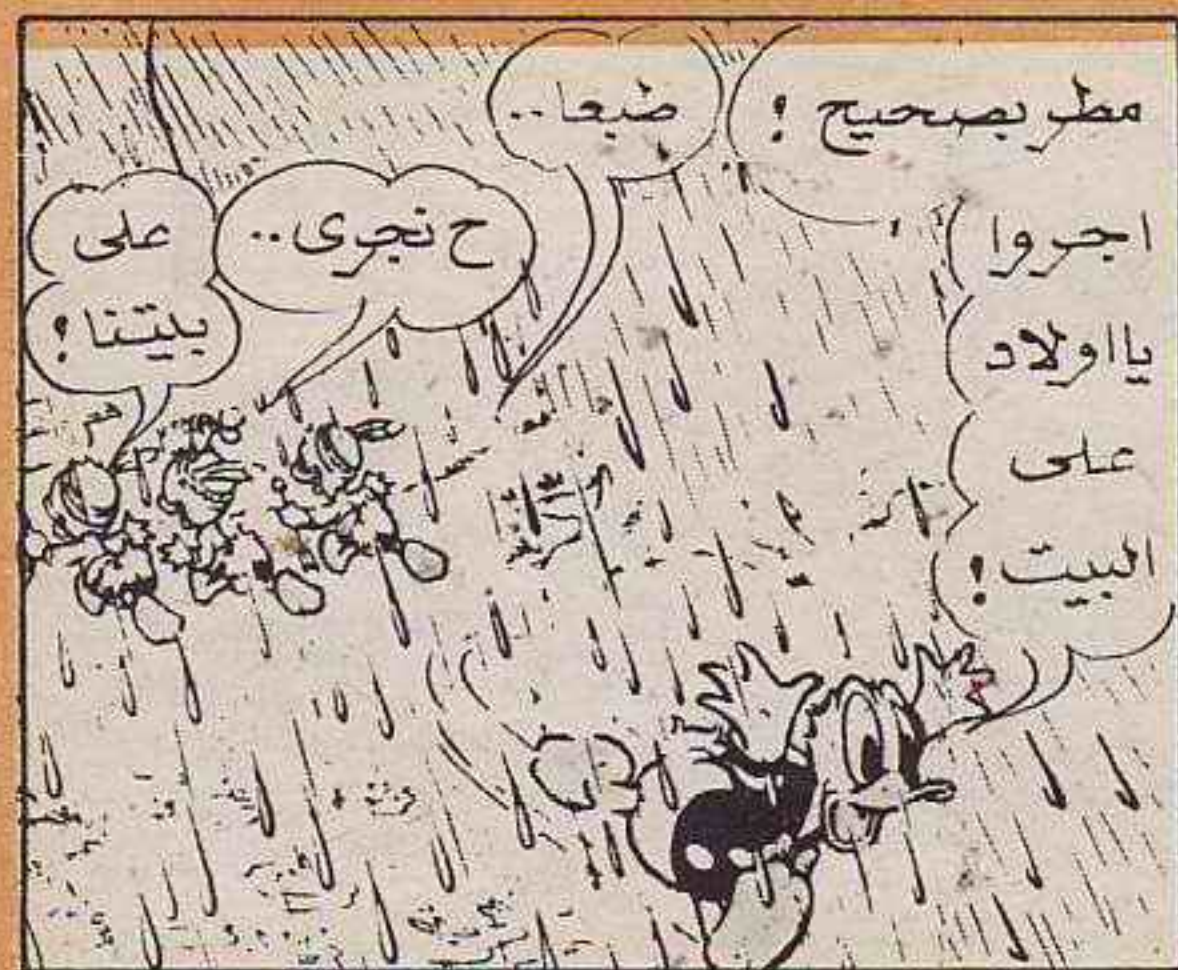 مطر بصحيح !
اجروا
يا اولاد
على
البيت !
ضبعا..
ح نجرى..
على
بيتنا !